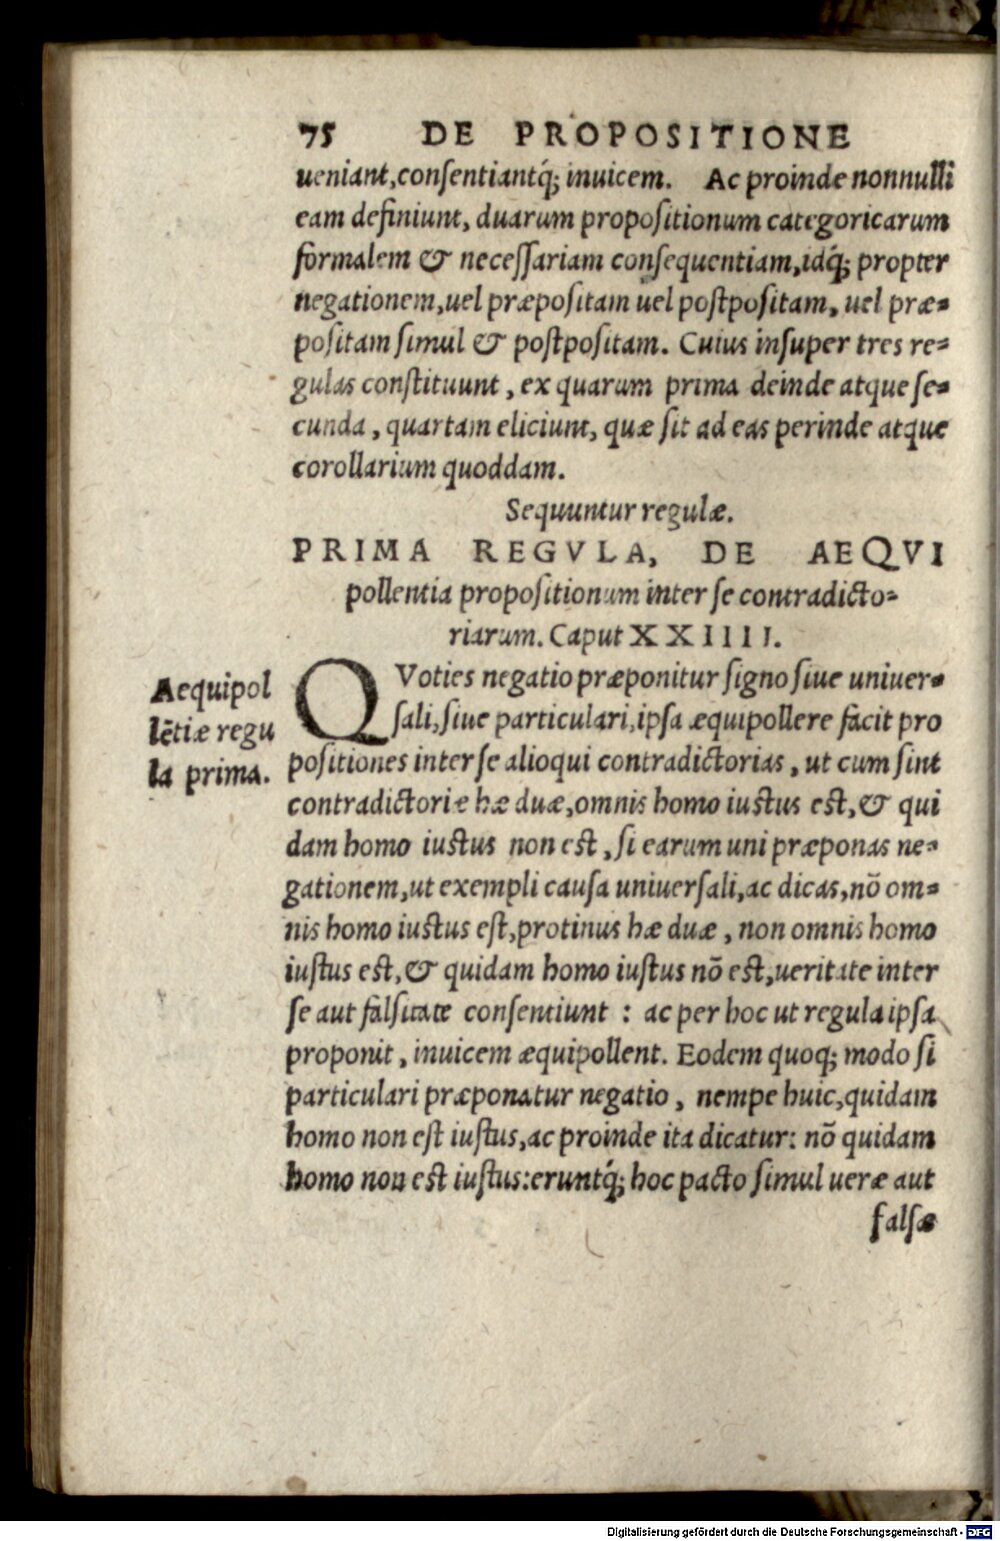 75 DE PROPOSITIONE
ueniant, consentiantq́; inuicem. Ac proinde nonnulli
eam definiunt, duarum propositionum categoricarum
formalem & necessariam consequentiam, idq́; propter
negationem, uel præpositam uel postpositam, uel præ=
positam simul & postpositam. Cuius insuper tres re=
gulas constituunt, ex quarum prima deinde atque se=
cunda, quartam eliciunt, quæ sit ad eas perinde atque
corollarium quoddam.
Sequuntur regulæ.
PRIMA REGVLA, DE AEQVI
pollentia propositionum inter se contradicto=
riarum. Caput XXIIII.
Aequipol
lētiæ regu
la prima.
QVoties negatio præponitur signo siue uniuer=
sali, siue particulari, ipsa æquipollere facit pro
positiones inter se alioqui contradictorias, ut cum sint
contradictoriæ hæ duæ, omnis homo iustus est, & qui
dam homo iustus non est, si earum uni præponas ne=
gationem, ut exempli causa uniuersali, ac dicas, nō om=
nis homo iustus est, protinus hæ duæ, non omnis homo
iustus est, & quidam homo iustus nō est, ueritate inter
se aut falsitate consentiunt : ac per hoc ut regula ipsa
proponit, inuicem æquipollent. Eodem quoq; modo si
particulari præponatur negatio, nempe huic, quidam
homo non est iustus, ac proinde ita dicatur: nō quidam
homo non est iustus: eruntq́; hoc pacto simul ueræ aut
falsæ
Digitalisierung gefördert durch die Deutsche Forschungsgemeinschaft - DFG